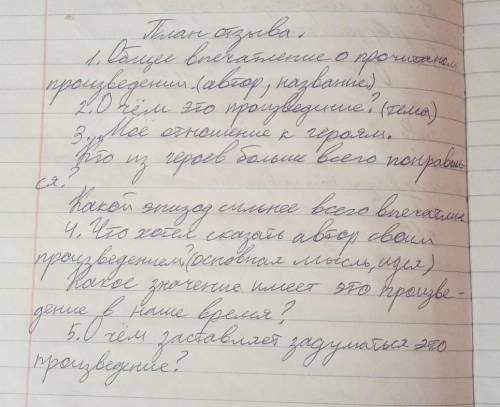 План отзыва.
1. Общее впечатление о прочитаном
произведении.(автор, название)
2. О чём это произведение? (тема)
3. Моё отношение к героям.
Кто из героев больше всего понравил-
ся?
Какой эпизод сильнее всего впечатлил
4. Что хотел сказать автор своим
произведением?(основная мысль, идея)
Какое значение имеет это произве-
дение в наше время?
5. О чём заставляет задуматься это
произведение?